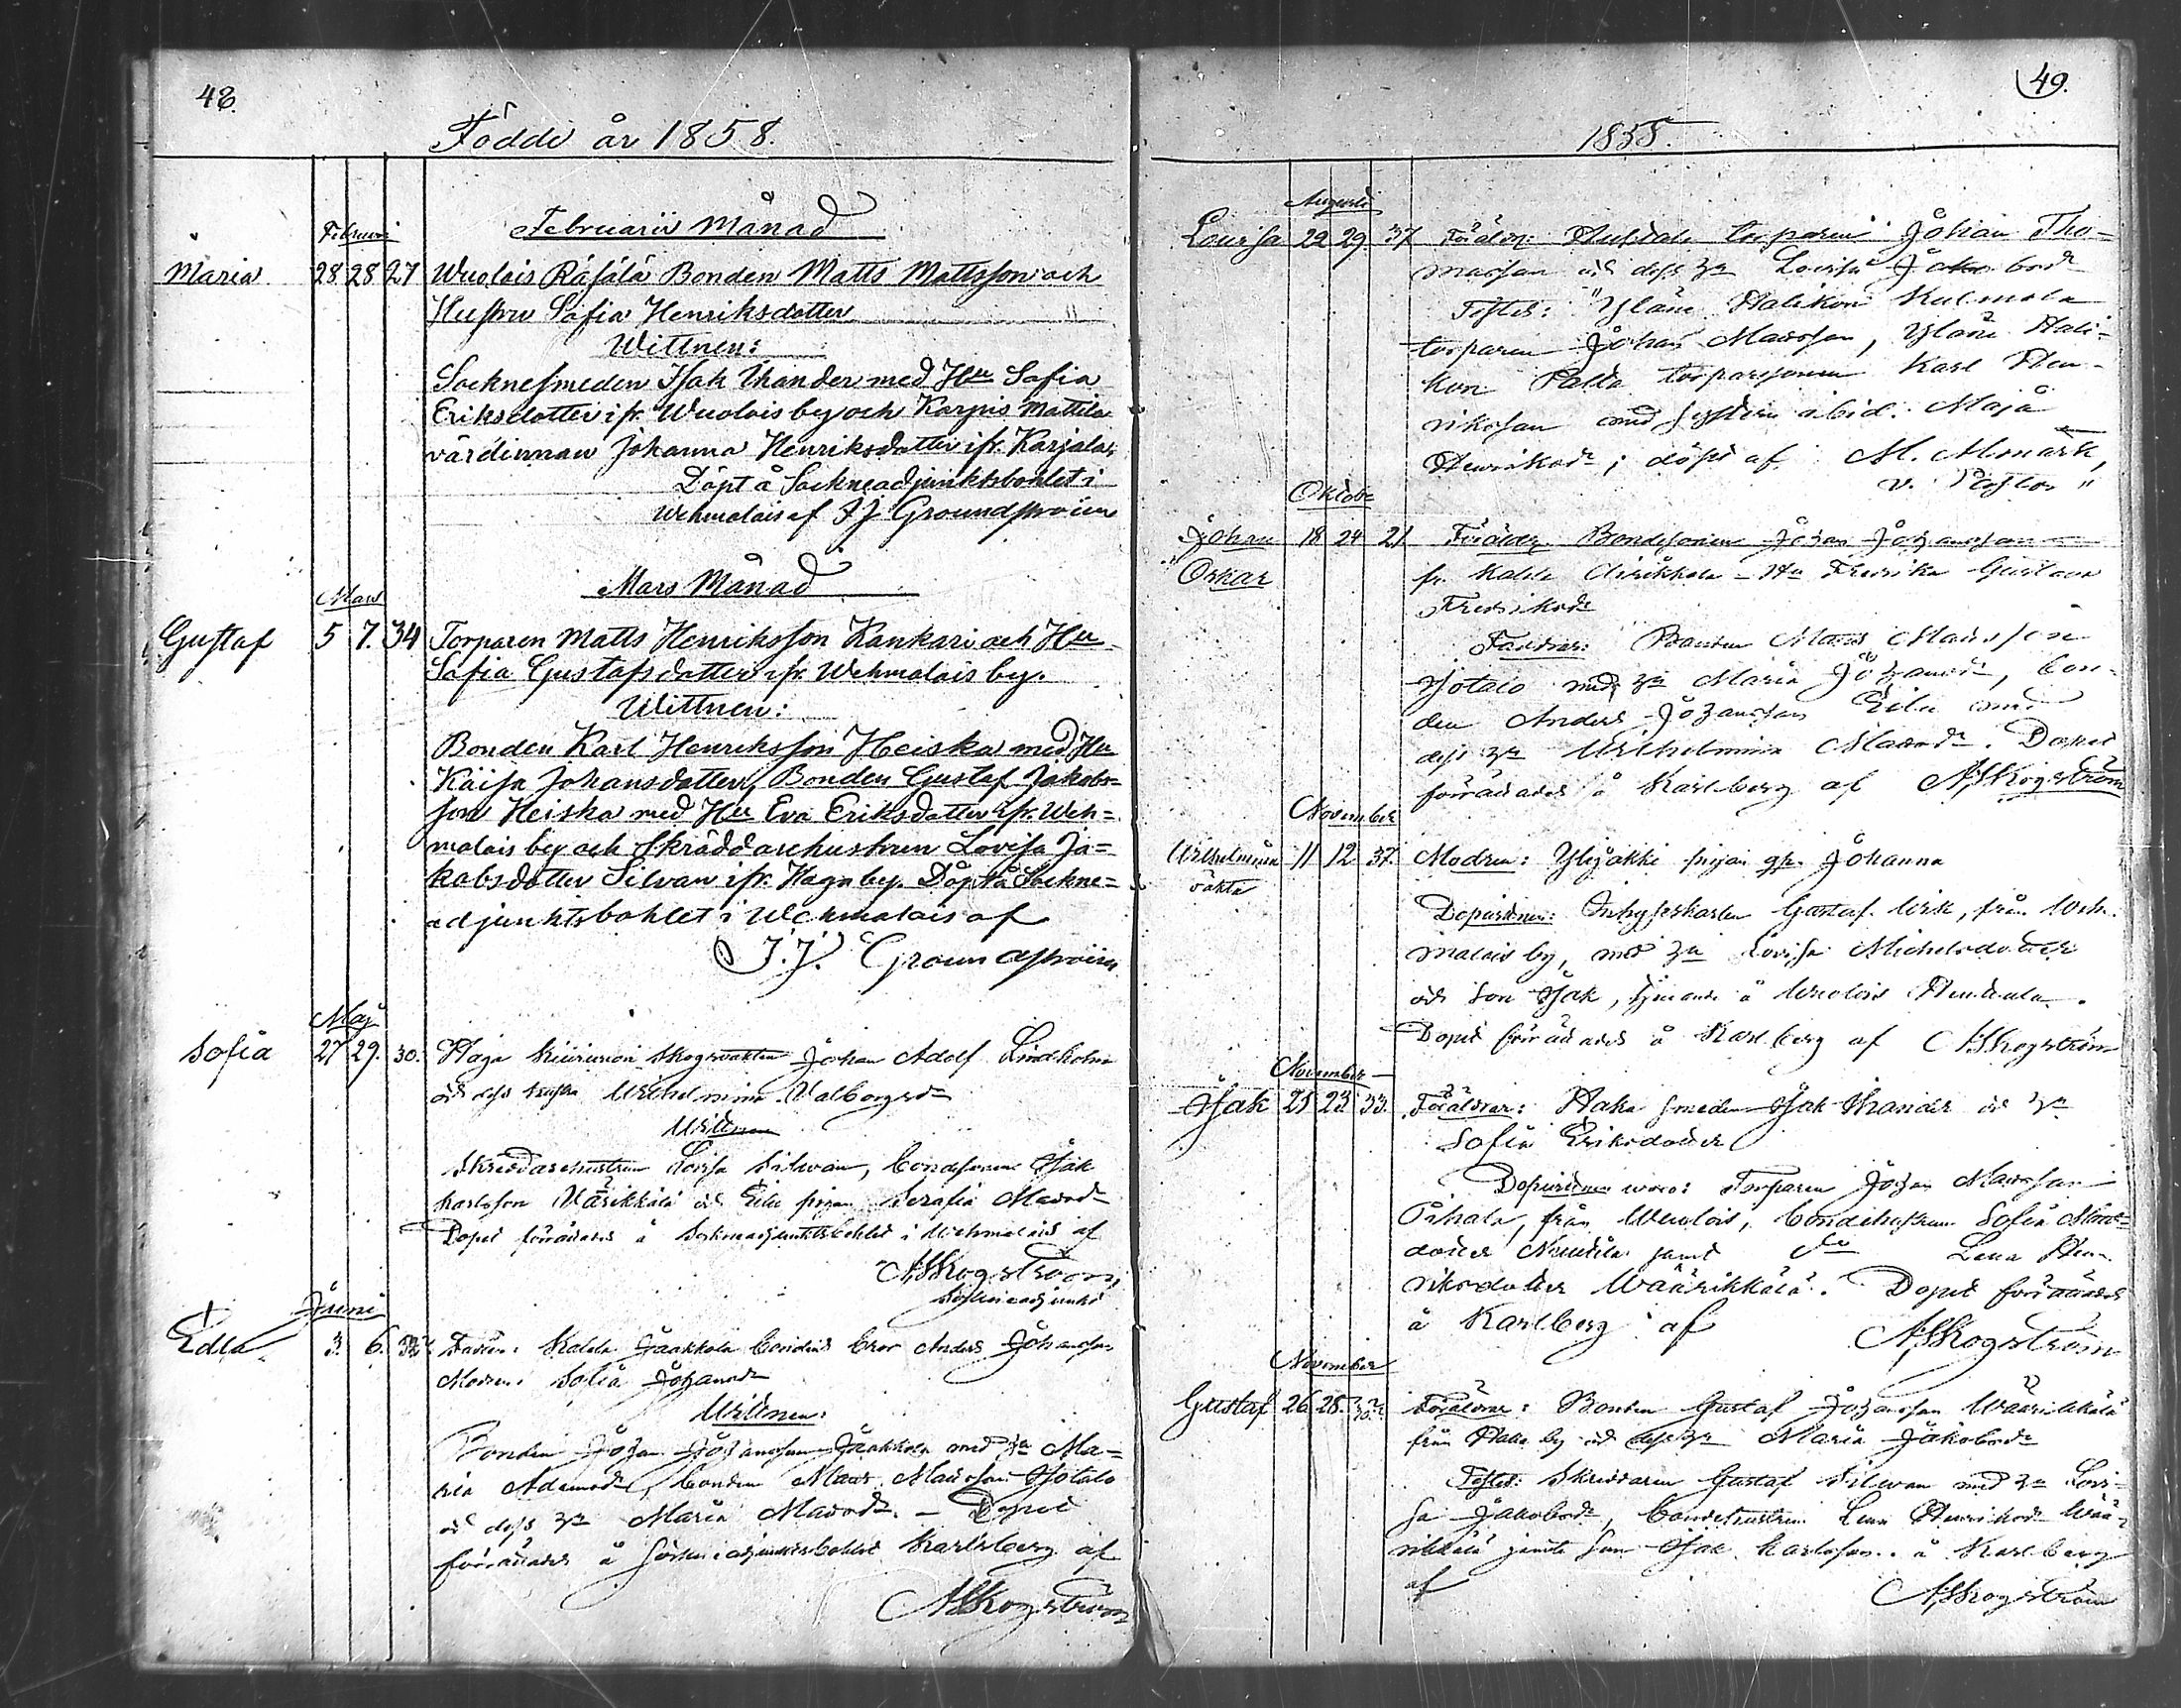 48.
Födde år 1858.
Februarii Månad
Februari
Maria 28 28 27 Wuolais Räfälä Bonden Matts Mattsson och
Hustru Safia Henriksdotter
Wittnen:
Socknesmeden Isak Thander med Hu Safia
Eriksdotter ifr. Wuolais by och Karpis Mattila
värdinnan Johanna Henriksdotter ifr. Karjala.
Döpt å Sockneadjunktsbohlet i
Wehmalais af J J Groundstroim
Mars Månad
Mars
Gustaf 5 7. 34 Torparen Matts Henriksson Kankari och Hu
Safia Gustafsdotter ifr. Wehmalais by.
Wittnen:
Bonden Karl Henriksson Heiska med Hu
Kaisa Johansdotter, Bonden Gustaf Jakobs=
son Heiska med Hu Eva Eriksdotter ifr. Weh=
malais by och Skräddarehustrun Lovisa Ja=
kobsdotter Silvan ifr. Haga by. Döpt å Sockne=
adjunktsbohlet i Wehmalais af
J. J. Groundstroim
Maj
Sofia 27 29. 30. Haga skogsvakten Johan Adolf Lindholm
och dess hustru Wilhelmina Valborgsdr
Wittnen
Skreddarehustrun Lovisa Silwan, bondesonen Isak
Karlsson Wärikkälä och Eilu pigan Serafia Matsdr
Dopet förrättades å Sockneadjunktsbohlet i Wehmalais af
A,Skogström,
Sockneadjunkt
Juni
Edla 3. 6. Fadren: Kalela Jaakkola bondens bror Anders Johansson
Modren: Sofia Johansdr
Wittnen:
Bonden Johan Johansson Jaakkola med Hu Ma=
ria Adamsdr, bonden Mats Matsson Isotalo
och dess Hu Maria Matsdr. – Dopet
förrättades å Sockneadjunktsbohlet Karlberg af
A,Skogström
49.
1858.
Augusti
Lovisa 22 29. 37 Föräldr: torparen Johan Tho-
masson och dess Hu Lovisa Jakobsdr
Testes: Yläne Halikon Kulmala
torparen Johan Matsson, Yläne Hali-
kon Palda torparsonen Karl Hen-
riksson med systern ibid. Maja
Henriksdr; döpt af M. Almark,
v. Pastor
Oktober
Johan 18 24 21. Föräldr. Bondesonen Johan Johansson
Oskar fr. Kalela – Hu Fredrika Gustava
Fredriksdr
Faddrar: Bonden Mats Matsson
Isotalo med Hu Maria Johansdr, bon-
den Anders Johansson Eilu med
dess Hu Wilhelmina Matsdr. Dopet
förrättades å Karlberg af A,Skogström
November
Wilhelmina 11 12 37. Modren: Ylijakki pigan Johanna
oäkta
Dopvittnen: Inhyseskarlen Gustaf Wik, från Weh-
malais by, med Hu Lovisa Michelsdotter
och son Isak, tjenande å Wuolois
Dopet förrättades å Karlberg af A,Skogström
November
Isak 21 23 33. Föräldrar: Haka smeden Isak Thander och Hu
Sofia Eriksdotter
Dopvittnen woro: Torparen Johan Matsson
från Wuolois, bondehustrun Sofia Mats-
dotter samt do Lena Hen-
riksdotter Wäärikkälä. Dopet förrättades
å Karlberg af A,Skogström
November
Gustaf 26. 28. Föräldrar: Bonden Gustaf Johansson Wäärikkälä
från Haka by och dess Hu Maria Jakobsdr
Testes: Skreddaren Gustaf Silwan med Hu Lovi-
sa Jakobsdr, bondehustrun Lena Henriksdr Wää-
rikkälä jemte son Isak Karlsson. å Karlberg
af A,Skogström